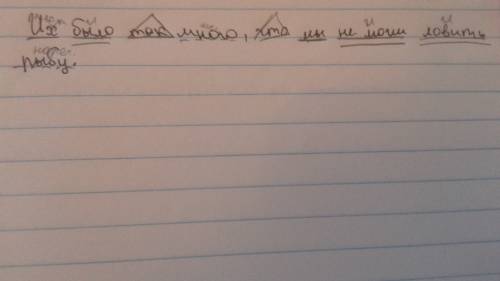 Их было так много, что мы не могли ловить
рыбу.